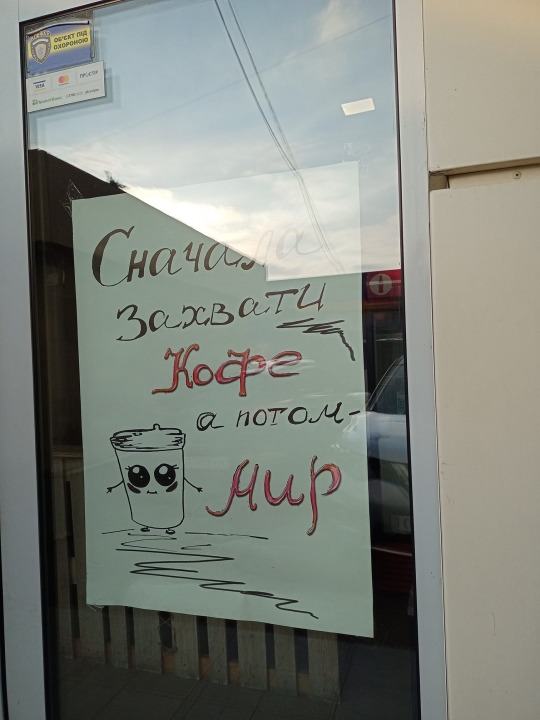 ОБ'ЄКТ ПІД
ОХОРОНОЮ
VISA
ПРОСТІР
Сначала
захвати
Кофе
а потом-
Мир